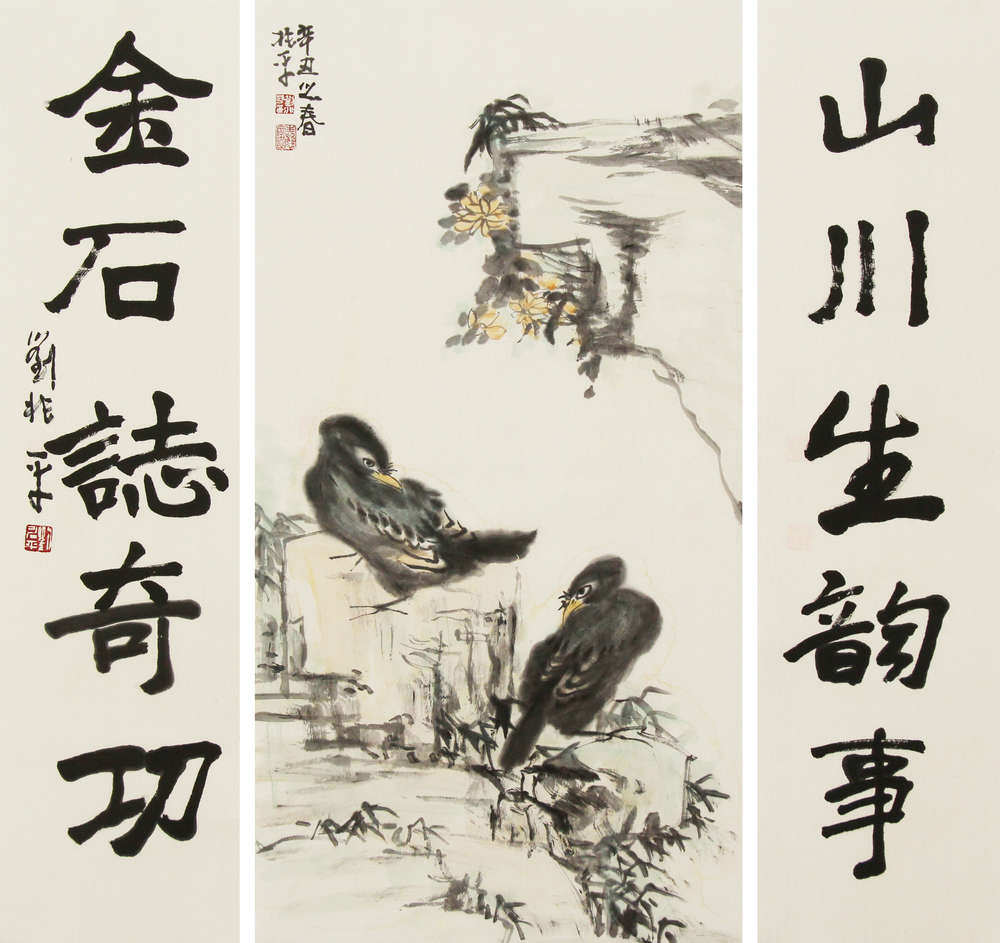 山川生韵事
辛丑之春
平
金石誌奇功
劉 平